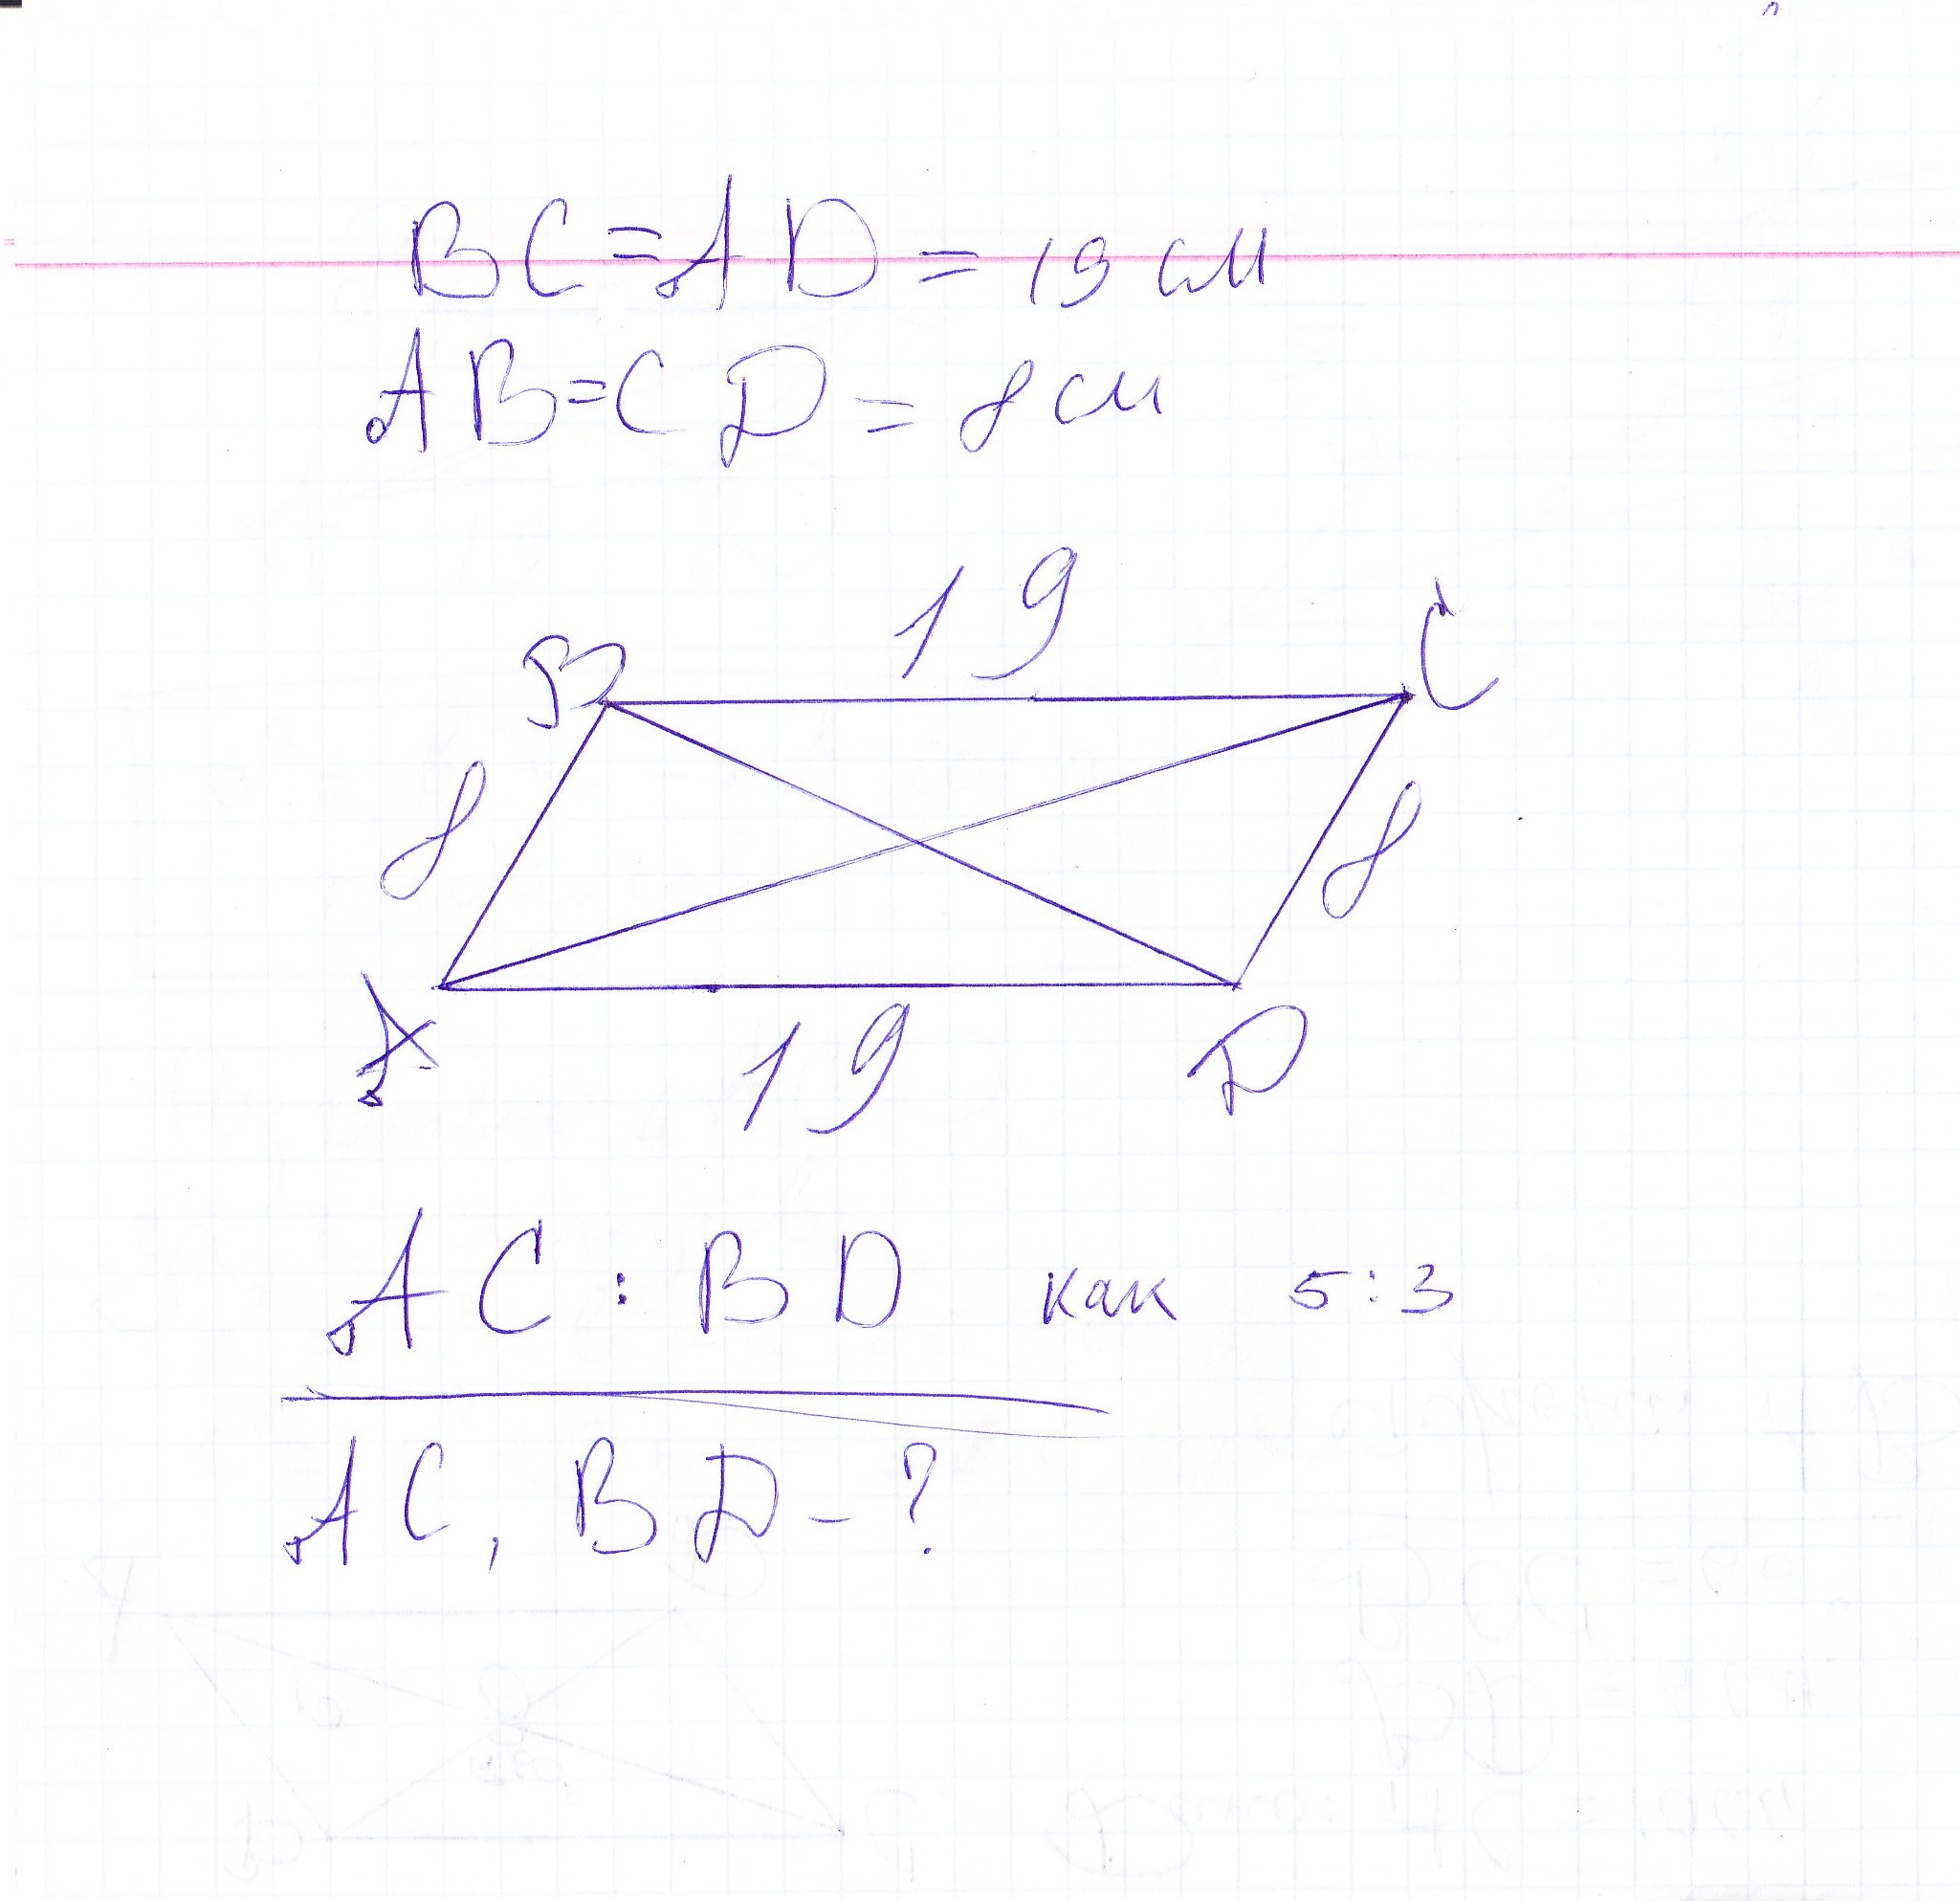 BC=AD=19 см
AB=CD=8 см
19
B
C
8
8
A
19
D
AC:BD как 5:3
AC, BD-?